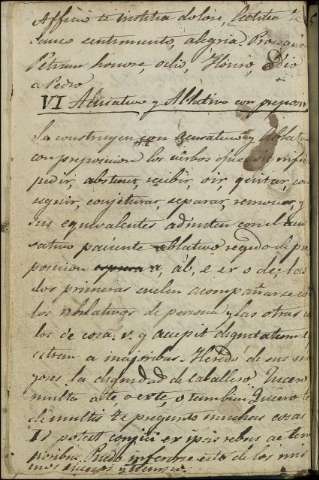 Afficio te tristitia dolore, Laetitia
sumo sentimento, alegria Prosequor
Petrum honore, odio, Honro, Odio
a Pedro
VI Acusativo y Ablativo con preposn
Se construyen con acusativo y ablativo
con preposicion los verbos que significan
pedir, abstener, recibir, oir, quitar, con
seguir, conjeturar, separar, remover, y
sus equivalentes admiten con el acu
sativo paciente ablativo regido de pre
posicion a, ab, e ex o de; las
dos primeras suelen acompañarse con
los ablativos de persona y las otras con
los de cosa, v. g accepit dignitatem
a majoribus. Heredó de sus ma
yores la dignidad de caballero. Quaero
multa a te, o ex te, o tambien Quaero te
de multis Te pregunto muchas cosas
Id potest conjici ex ipsis rebus ac tem
poribus. Puede inferirse esto de los mis
mos sucesos y tiempos